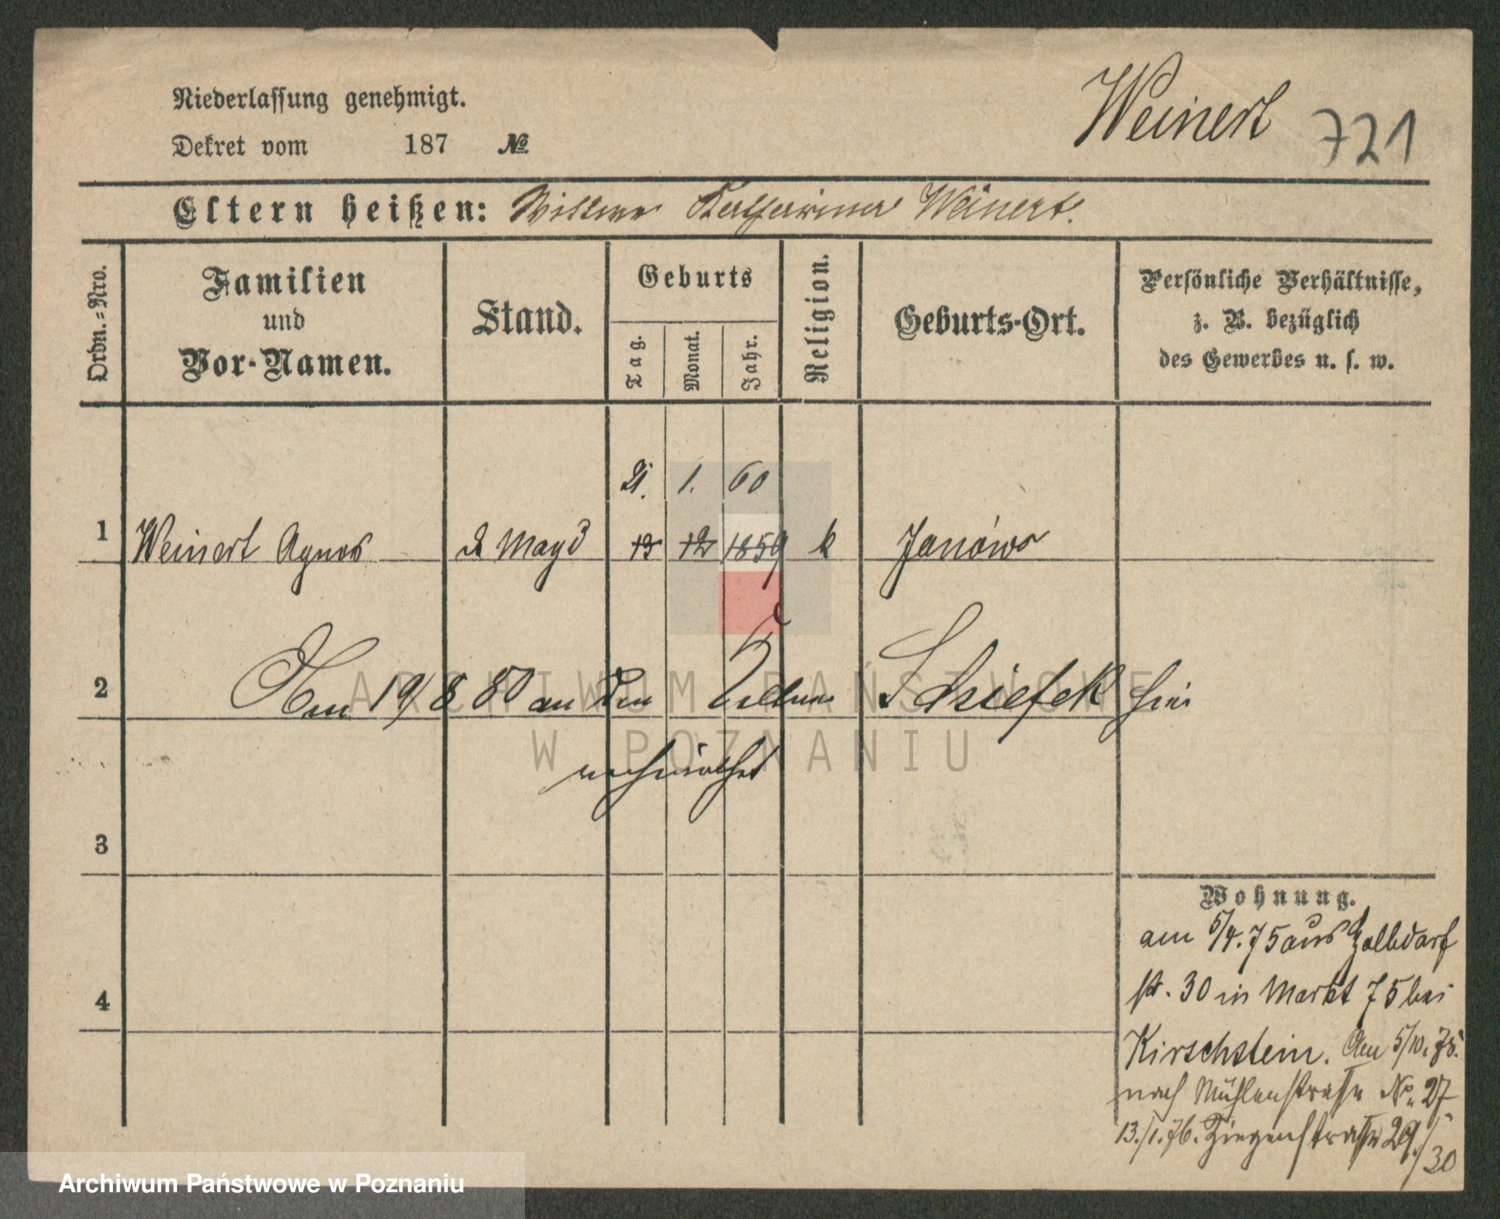 Niederlassung genehmigt.
Weinert 721
Dekret vom 187 №
Eltern heißen: Wittwe Katharina Weinert.
Ordn.-Nro.
Familien
und
Vor-Namen.
Stand.
Geburts
Tag.
Monat.
Jahr.
Religion.
Geburts-Ort.
Persönliche Verhältnisse,
z. B. bezüglich
des Gewerbes u. s. w.
21. 1. 60
1 Weinert Agnes d Magd 13 12 1859 k Janówo
2 Am 19/8 80 an den hier
verheirathet
3
Wohnung.
am 5/4. 75 aus Halbdorf
str. 30 in Markt 75 bei
4
Kirschstein. Am 5/10. 75.
nach Mühlenstrasse No. 27
13./1. 76. Ziegenstrasse 29./30
ARCHIWUM PAŃSTWOWE
W POZNANIU
Archiwum Państwowe w Poznaniu